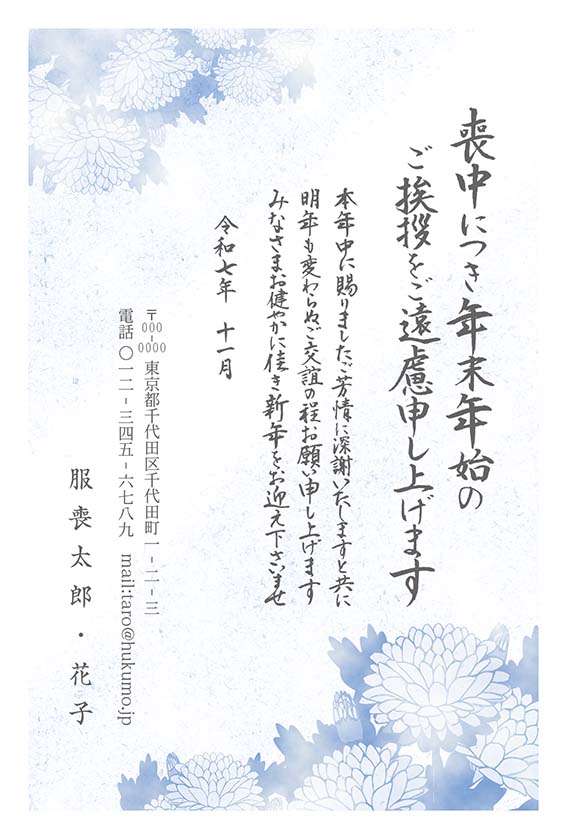 喪中につき年末年始の
ご挨拶をご遠慮申し上げます
本年中に賜りましたご芳情に深謝いたしますと共に
明年も変わらぬご交誼の程お願い申し上げます
みなさまお健やかに佳き新年をお迎え下さいませ
令和七年 十一月
〒000-0000 東京都千代田区千代田町一-二-三
電話 〇一二-三四五-六七八九 mail:taro@hukumo.jp
服喪太郎・花子